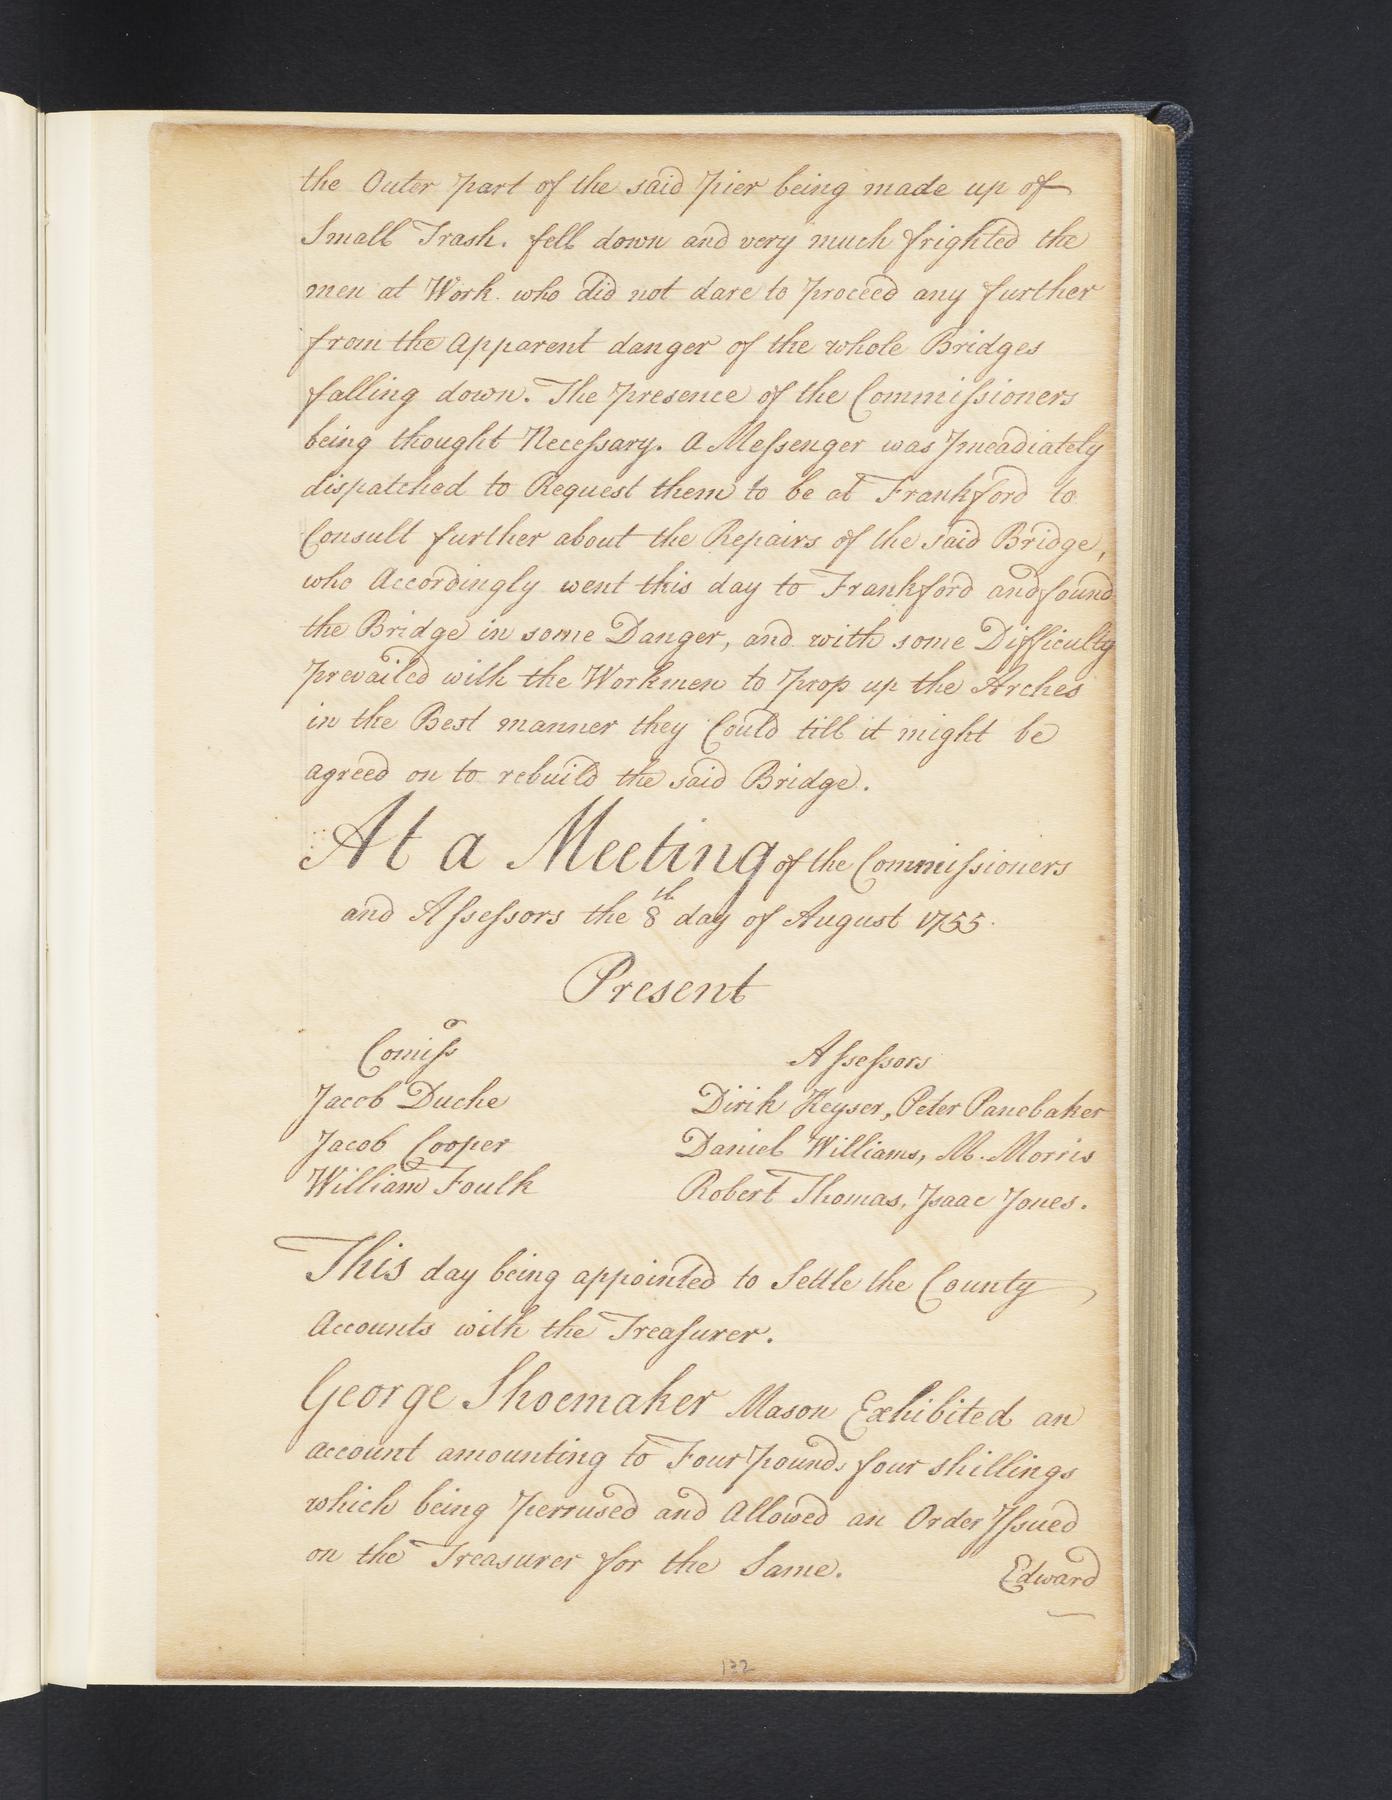 the Outer part of the said pier being made up of
Small Trash. fell down and very much frighted the
men at Work. who did not dare to proceed any further
from the Apparent danger of the whole Bridges
falling down. The presence of the Commiſsioners
being thought Neceſsary. A Meſsenger was Imeadiately
dispatched to Request them to be at Frankford to
Consult further about the Repairs of the said Bridge,
who Accordingly went this day to Frankford and found
the Bridge in some Danger, and with some Difficulty
prevailed with the Workmen to prop up the Arches
in the Best manner they Could till it might be
agreed on to rebuild the said Bridge.
At a Meeting of the Commiſsioners
and Aſseſsors the 8th day of August 1755.
Present
Comiſsrs
Aſseſsors
Jacob Duche
Dirik Keyser, Peter Panebaker
Jacob Cooper
Daniel Williams, M. Morris
William Foulk
Robert Thomas, Isaac Jones.
This day being appointed to Settle the County
Accounts with the Treaſurer.
George Shoemaker Mason Exhibited an
account amounting to Four pounds four shillings
which being perrused and Allowed an Order Iſsued
on the Treasurer for the Same.
Edward
132